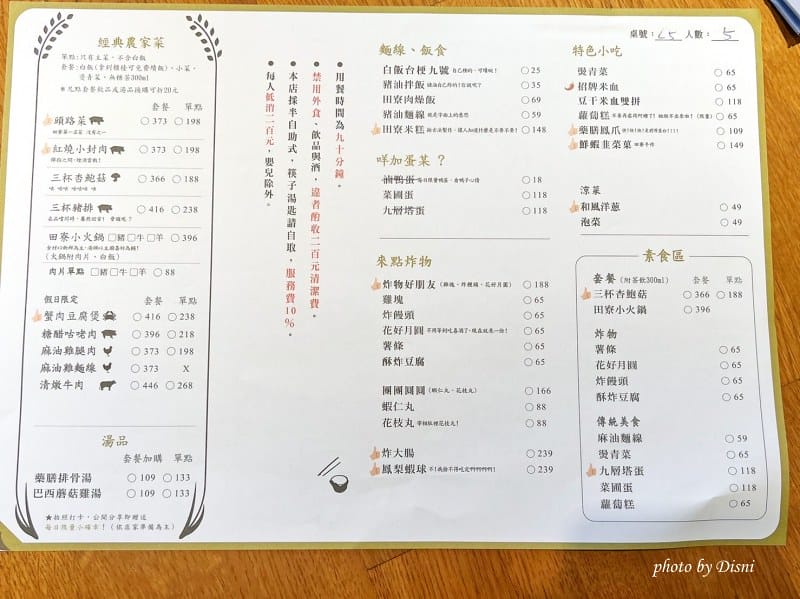 桌號： 65 人數： 5
經典農家菜
單點：只有主菜，不含白飯
套餐：白飯(拿到櫃檯可免費續飯)、小菜、
燙青菜、無糖茶300ml
＊凡點套餐飲品或湯品後購可折20元
套餐 單點
頭路菜 373 198
紅燒小封肉 373 198
三杯杏鮑菇 366 188
三杯豬排 416 238
田寮小火鍋 豬 牛 羊 396
(火鍋附肉片、白飯)
肉片單點 豬 牛 羊 88
假日限定 套餐 單點
蟹肉豆腐煲 416 238
糖醋咕咾肉 396 218
麻油雞腿肉 373 198
麻油雞麵線 373 X
清燉牛肉 446 268
湯品
套餐加購 單點
藥膳排骨湯 109 133
巴西蘑菇雞湯 109 133
★拍照打卡，公開分享即贈送
每日限量小確幸！(依店家準備為主)
● 用餐時間為九十分鐘。
● 禁用外食、飲品與酒，違者酌收二百元清潔費。
● 本店採半自助式，筷子湯匙請自取，服務費10%。
● 每人低消二百元，嬰兒除外。
麵線、飯食
白飯台梗九號 自己種的，可續碗！ 25
豬油拌飯 35
田寮肉燥飯 69
豬油麵線 59
田寮米糕 148
咩加蛋某？
滷鴨蛋 18
菜圃蛋 118
九層塔蛋 118
來點炸物
炸物好朋友 (雞塊、炸饅頭、花好月圓) 188
雞塊 65
炸饅頭 65
花好月圓 65
薯條 65
酥炸豆腐 65
團團圓圓 (蝦仁丸、花枝丸) 166
蝦仁丸 88
花枝丸 88
炸大腸 239
鳳梨蝦球 239
特色小吃
燙青菜 65
招牌米血 65
豆干米血雙拼 118
蘿蔔糕 65
藥膳鳳爪 109
鮮蝦韭菜菓 149
涼菜
和風洋蔥 49
泡菜 49
素食區
套餐 (附茶飲300ml) 套餐 單點
三杯杏鮑菇 366 188
田寮小火鍋 396
炸物
薯條 65
花好月圓 65
炸饅頭 65
酥炸豆腐 65
傳統美食
麻油麵線 59
燙青菜 65
九層塔蛋 118
菜圃蛋 118
蘿蔔糕 65
photo by Disni